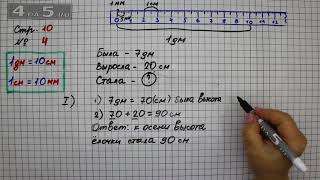 4 за 5.ru
Стр. 10
№ 4
1дм = 10см
1см = 10мм
1мм 1см
0 1 2 3 4 5 6 7 8 9 10 11 12
1дм
Была - 7дм
Выросла - 20см
Стала - ?
I) 1) 7дм = 70(см) была высота
2) 70 + 20 = 90см
Ответ: к осени высота
ёлочки стала 90см